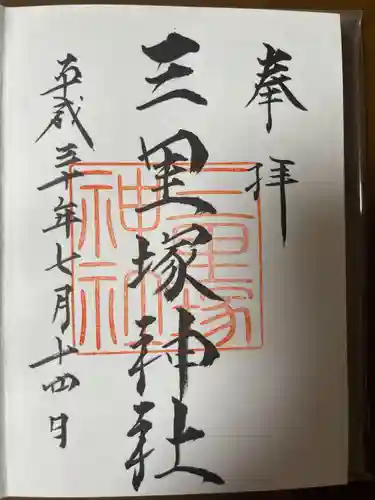 奉拝
三里塚神社
平成三十年七月十四日
三里塚
神社